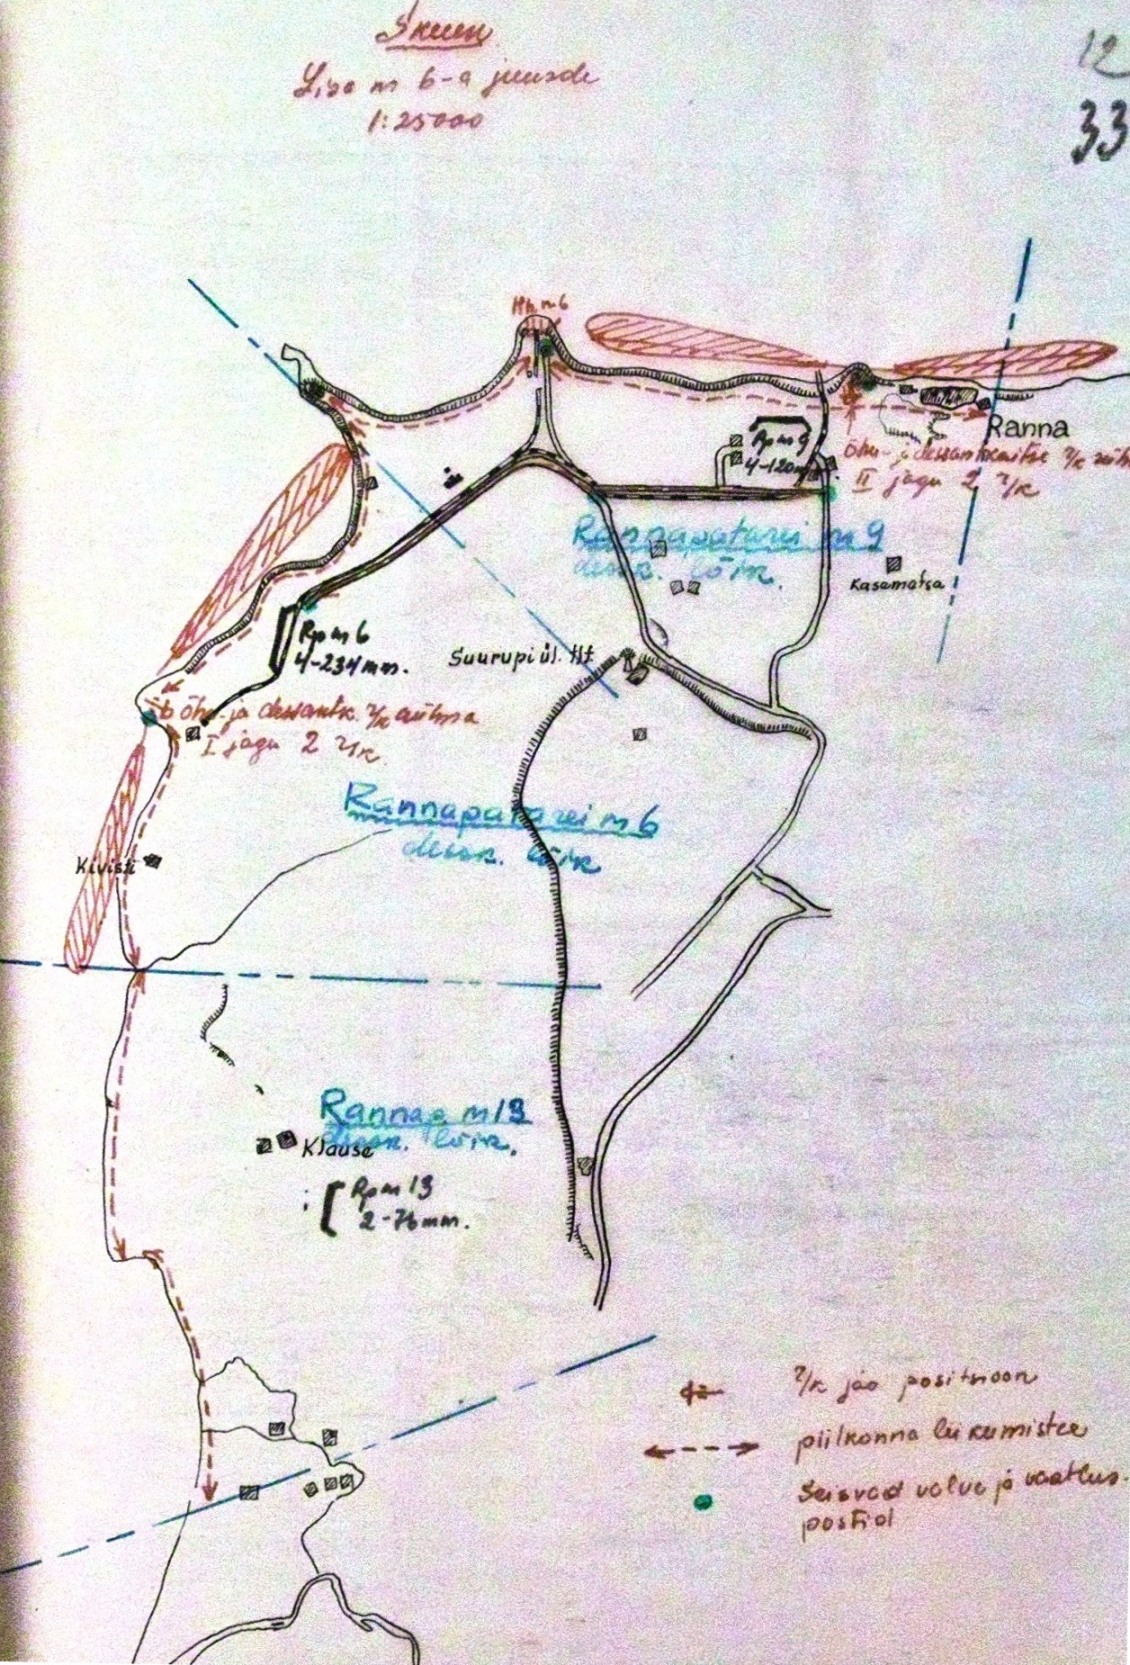 Skeem
Lisa nr 6-a juurde
1:25000
12
33
Hh. nr 6
Ranna
Rp nr 9
4-120mm
Õhu- ja dessantkaitse r/k rühm
II jagu 2 r/k
Rannapatarei nr 9
dessk. lõik.
Kasemetsa
Rp nr 6
4-234mm.
Suurupi ül.
õhu- ja dessantk. r/k rühma
I jagu 2 r/k.
Rannapatarei nr 6
dessk. lõik
Kivisti
Rannap nr 13
dessk. lõik.
Klause
Rp nr 13
2-76mm.
r/k jao positsioon
piilkonna liikumistee
Seisvad valve ja vaatlus-
postid